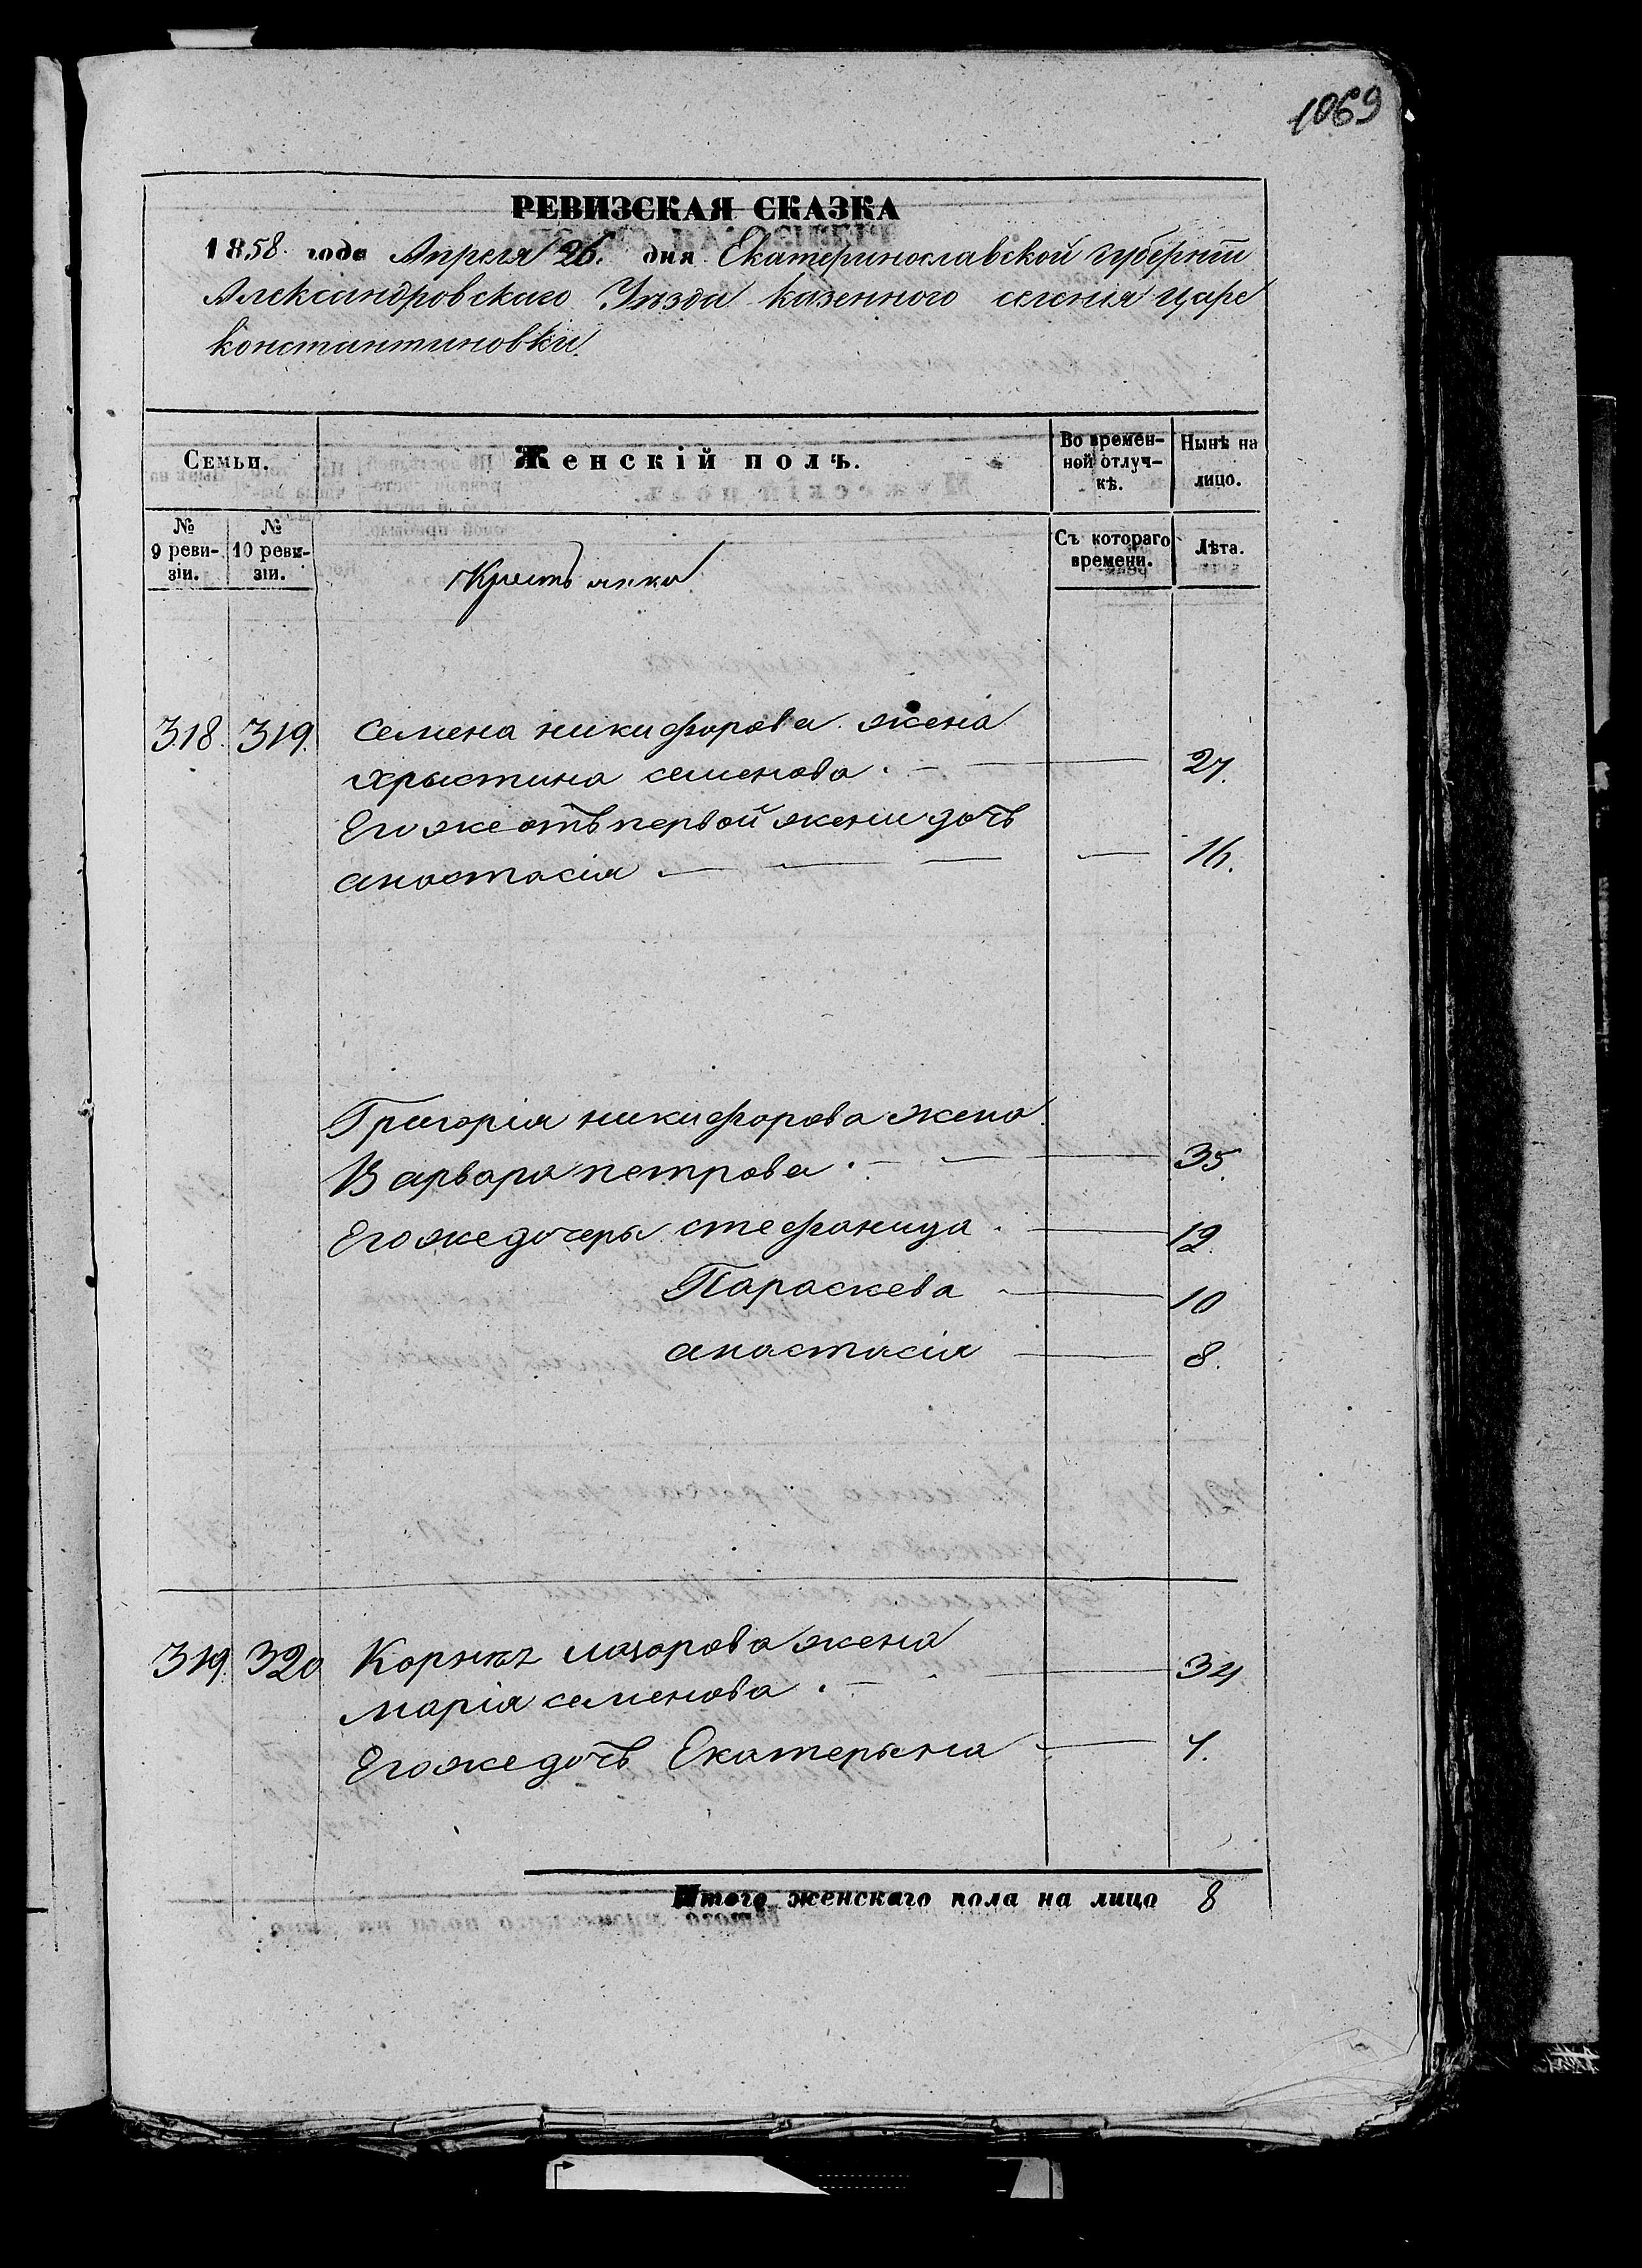 1069
РЕВИЗСКАЯ СКАЗКА
1858. года Апреля 26. дня Екатеринославской губернiи
Александровскаго Уѣзда казенного селения царе
константиновки.
Семьи. Женскiй полъ. Во времен-ной отлуч-кѣ. Нынѣ на лицо.
№ 9 реви-зiи. № 10 реви-зiи. Съ котораго времени. Лѣта.
Крестьянки
318. 319. Семена никифорова жена
христина семенова. 27.
Его же отъ первой жени дочь
анастасiя 16.
Григорiя никифорова жена
Варвара петрова. 35.
Его же дочеры стефанида. 12.
Параскева 10
анастасiя 8.
319. 320 Корнея лазорова жена
марiя семенова. 34
Его же дочь Екатерына 1.
Итого женскаго пола на лицо 8